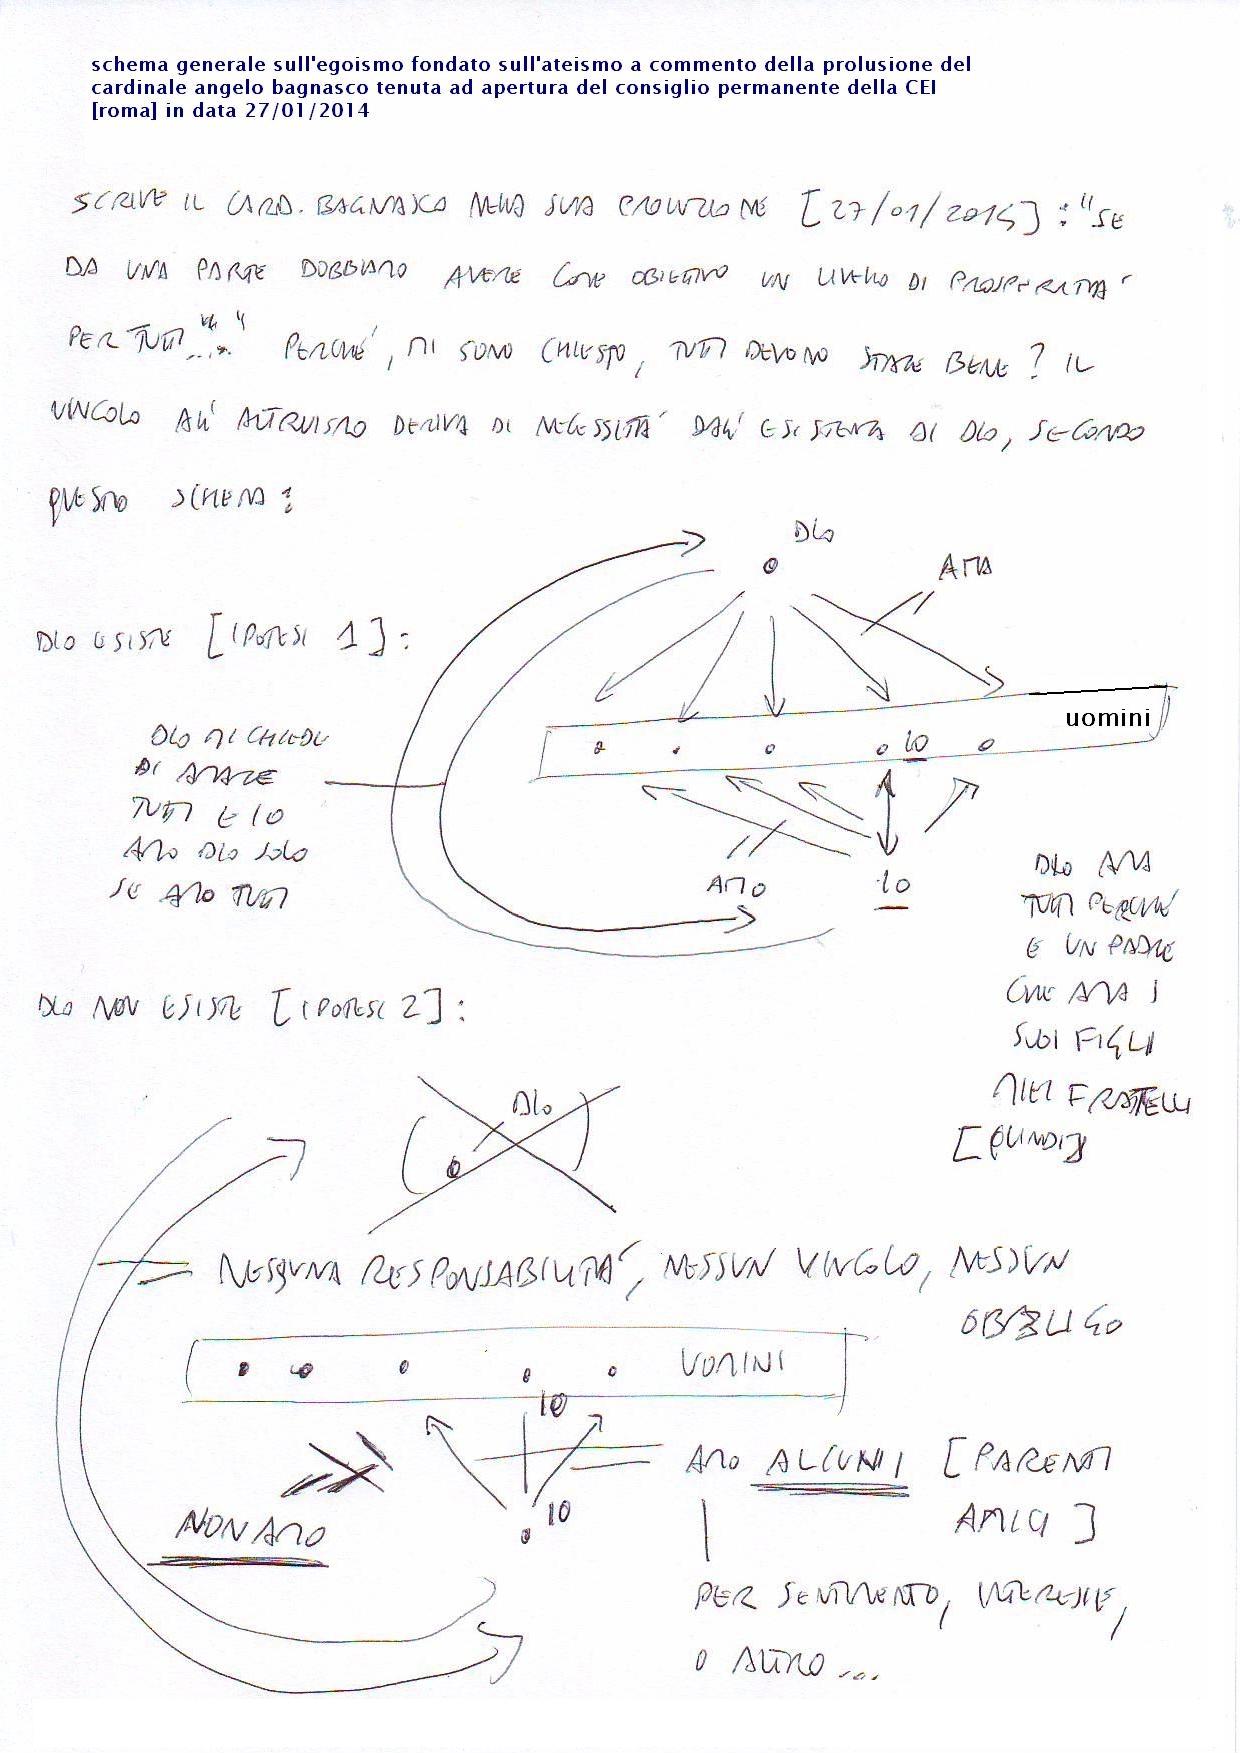 schema generale sull'egoismo fondato sull'ateismo a commento della prolusione del
cardinale angelo bagnasco tenuta ad apertura del consiglio permanente della CEI
[roma] in data 27/01/2014
SCRIVE IL CARD. BAGNASCO NELLA SUA PROLUZIONE [27/01/2014] : "SE
DA UNA PARTE DOBBIAMO AVERE COME OBIETTIVO UN LIVELLO DI PROSPERITA'
PER TUTTI....." PERCHE', MI SONO CHIESTO, TUTTI DEVONO STARE BENE ? IL
VINCOLO ALL' ALTRUISMO DERIVA DI NECESSITA' DALL' ESISTENZA DI DIO, SECONDO
QUESTO SCHEMA :
DIO
AMA
DIO ESISTE [IPOTESI 1] :
uomini
IO
DIO MI CHIEDE
DI AMARE
TUTTI E IO
AMO DIO SOLO
SE AMO TUTTI
AMO
IO
DIO AMA
TUTTI PERCHE'
E UN PADRE
CHE AMA I
SUOI FIGLI
MIEI FRATELLI
[QUINDI]
DIO NON ESISTE [IPOTESI 2] :
DIO
NESSUNA RESPONSABILITA', NESSUN VINCOLO, NESSUN
OBBLIGO
UOMINI
IO
AMO ALCUNI [PARENTI
AMICI]
IO
NON AMO
PER SENTIMENTO, INTERESSE,
O ALTRO ...